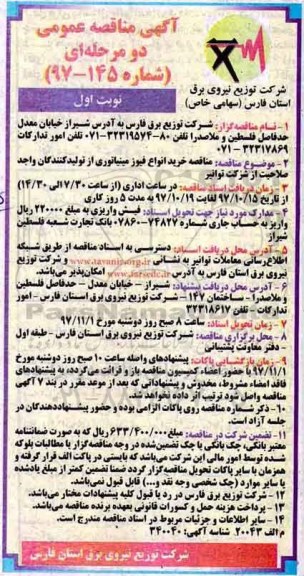 آگهی مناقصه عمومی
دو مرحله‌ای
(شماره ۱۴۵-۹۷)
نوبت اول
شرکت توزیع نیروی برق
استان فارس (سهامی خاص)
۱ - نام مناقصه‌گزار: شرکت توزیع برق فارس به آدرس شیراز خیابان معدل
حدفاصل فلسطین و ملاصدرا تلفن ۸۰-۳۲۳۱۹۵۷۴-۰۷۱ تلفن امور تدارکات
۳۲۳۱۷۸۶۹ - ۰۷۱
۲ - موضوع مناقصه: مناقصه خرید انواع فیوز مینیاتوری از تولیدکنندگان واجد
صلاحیت از شرکت توانیر
۳ - زمان دریافت اسناد مناقصه: در ساعات اداری (از ساعت ۷/۳۰ الی ۱۴/۳۰)
از تاریخ ۹۷/۱۰/۱۵ لغایت ۹۷/۱۰/۱۹ به مدت ۵ روز کاری
۴ - مدارک مورد نیاز جهت تحویل اسناد: فیش واریزی به مبلغ ۲۲۰۰۰۰ ریال
واریز به حساب جاری شماره ۰۷۸۶۰۰۷۴۸۲۷ بانک تجارت شعبه فلسطین
شیراز
۵ - آدرس محل دریافت اسناد: دسترسی به اسناد مناقصه از طریق شبکه
اطلاع‌رسانی معاملات توانیر به نشانی و شرکت توزیع
نیروی برق استان فارس به آدرس امکان‌پذیر می‌باشد.
۶ - آدرس محل دریافت پیشنهاد: شیراز - خیابان معدل - حدفاصل فلسطین
و ملاصدرا - ساختمان ۱۴۷ - شرکت توزیع نیروی برق استان فارس - امور
تدارکات - تلفن ۳۲۳۱۸۶۱۷
۷ - زمان تحویل اسناد: ساعت ۸ صبح روز دوشنبه مورخ ۹۷/۱۱/۱
۸ - محل برگزاری مناقصه: شرکت توزیع نیروی برق استان فارس - طبقه اول
- دفتر معاونت پشتیبانی
۹ - زمان بازگشایی پاکات: پیشنهادهای واصله ساعت ۱۰ صبح روز دوشنبه مورخ
۹۷/۱۱/۱ با حضور اعضاء کمیسیون مناقصه باز و قرائت می‌گردد، به پیشنهادهای
فاقد امضاء، مشروط، مخدوش و پیشنهاداتی که بعد از موعد مقرر در بند ۷ آگهی
مناقصه واصل شود ترتیب اثر داده نخواهد شد.
۱۰ - ذکر شماره مناقصه روی پاکات الزامی بوده و حضور پیشنهاددهندگان در
جلسه آزاد است.
۱۱ - تضمین شرکت در مناقصه: مبلغ ۶۳۳/۴۰۰/۰۰۰ ریال که به صورت ضمانتنامه
معتبر بانکی، چک بانکی یا چک تضمین‌شده در وجه مناقصه‌گزار یا مطالبات بلوکه
شده توسط امور مالی این شرکت می‌باشد که بایستی در پاکت الف قرار گرفته و
همزمان با سایر پاکات تحویل مناقصه‌گزار گردد ضمناً تضمین کمتر از مبلغ یادشده
یا سایر موارد (چک شخصی وجه نقد و...) قابل قبول نمی‌باشد.
۱۲ - شرکت توزیع برق فارس در رد یا قبول کلیه پیشنهادات مختار می‌باشد.
۱۳ - پرداخت هزینه حمل و کسورات قانونی بعهده برنده مناقصه می‌باشد.
۱۴ - سایر اطلاعات و جزئیات مربوط در اسناد مناقصه مندرج است.
م الف ۲۰۰۴۳، شناسه آگهی: ۳۴۰۰۴۰
شرکت توزیع نیروی برق استان فارس